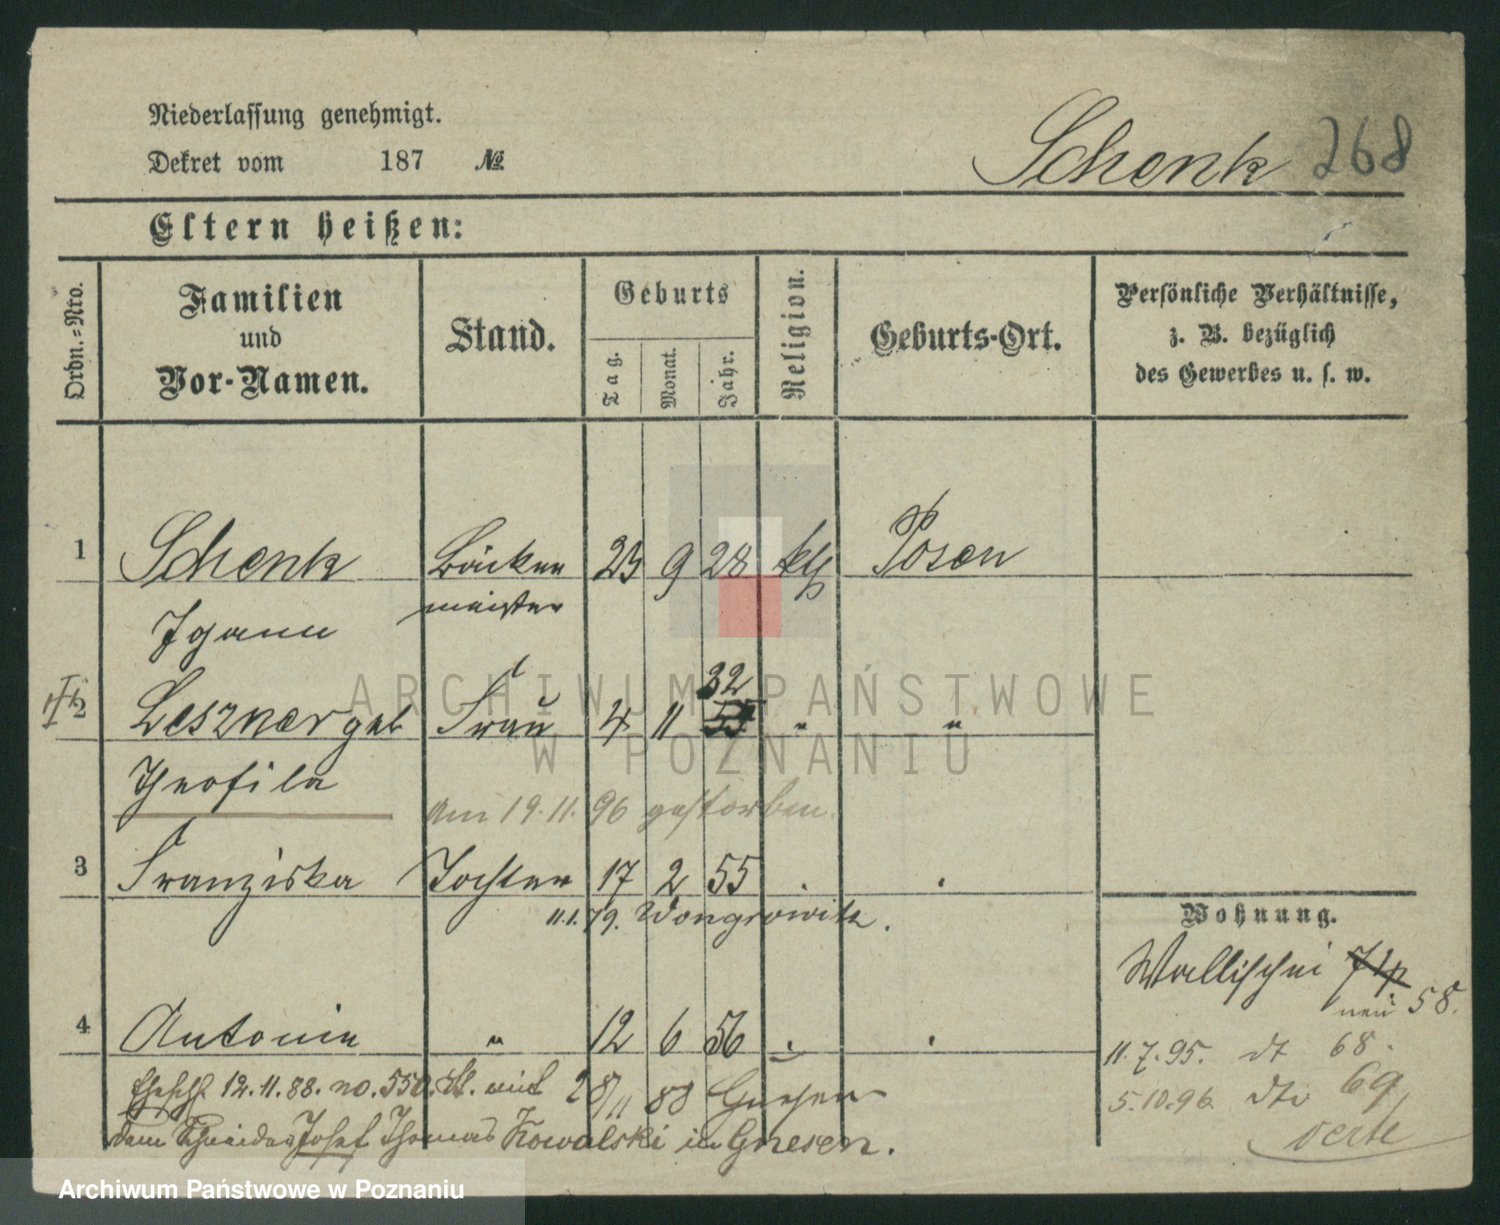 Niederlassung genehmigt.
Dekret vom 187 №
Schenk 268
Eltern heißen:
Ordn.-Nro.
Familien
und
Vor-Namen.
Stand.
Geburts
Tag.
Monat.
Jahr.
Religion.
Geburts-Ort.
Persönliche Verhältnisse,
z. B. bezüglich
des Gewerbes u. s. w.
1 Schenk Bäcker 23 9 28 kth Posen
meister
32
2 Lesznar geb Frau 4 11 55 " "
Theofila
Am 19.11.96 gestorben.
3 Franziska Tochter 17 2 55 . .
11.1.79. Wongrowitz.
Wohnung.
Wallischei
neu 58.
4 Antonie " 12 6 56 . .
11.7.95. dt 68.
Ehesch. 12.11.88. no. 550. mit 28/11 88 Gnesen
5.10.96 dto 69
dem Schneider Josef Thomas Kowalski in Gnesen.
verte
ARCHIWUM PAŃSTWOWE
W POZNANIU
Archiwum Państwowe w Poznaniu